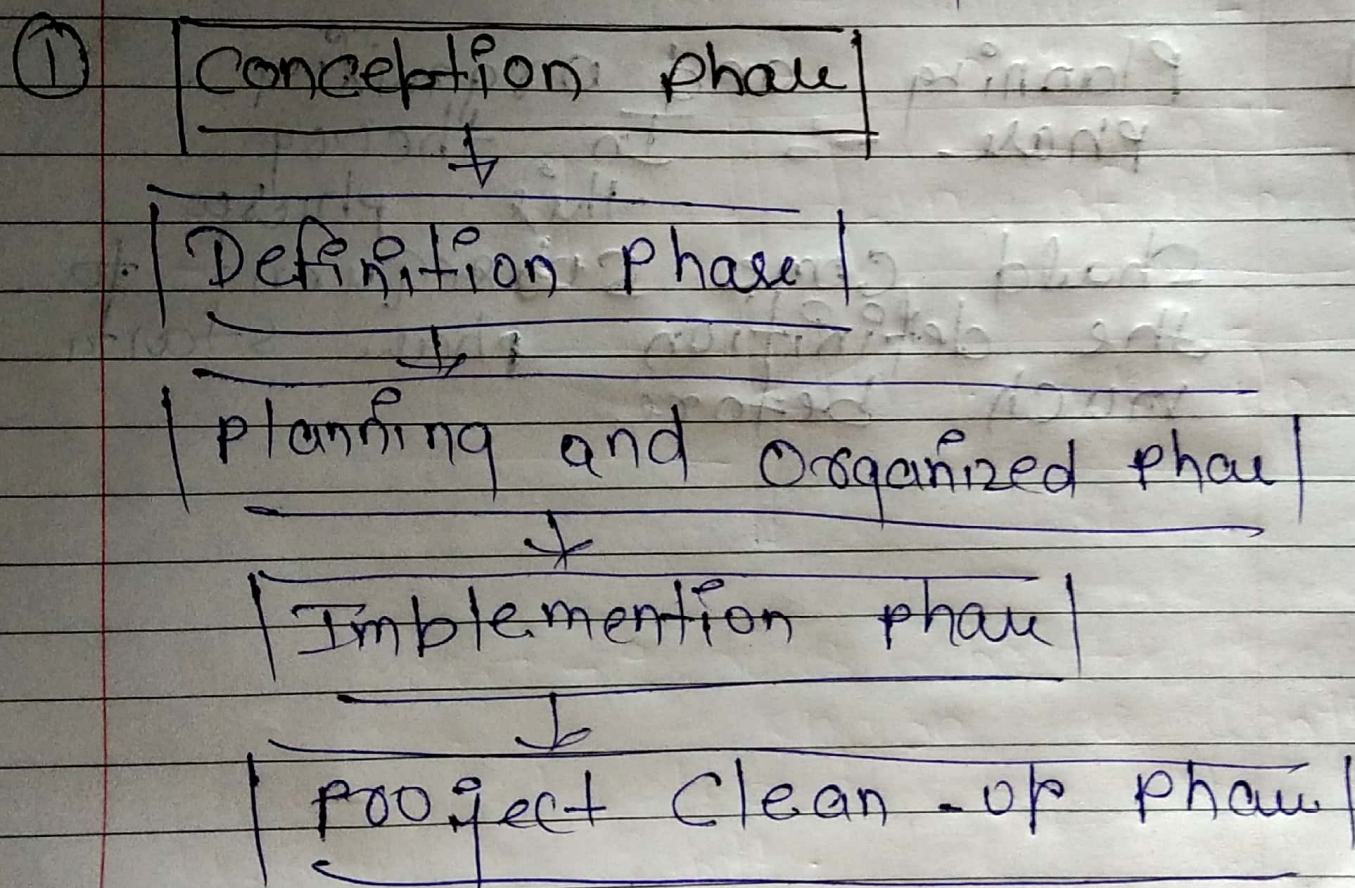 ① Conception phase
Definition phase
planning and Organized phase
Implemention phase
Project Clean-up phase